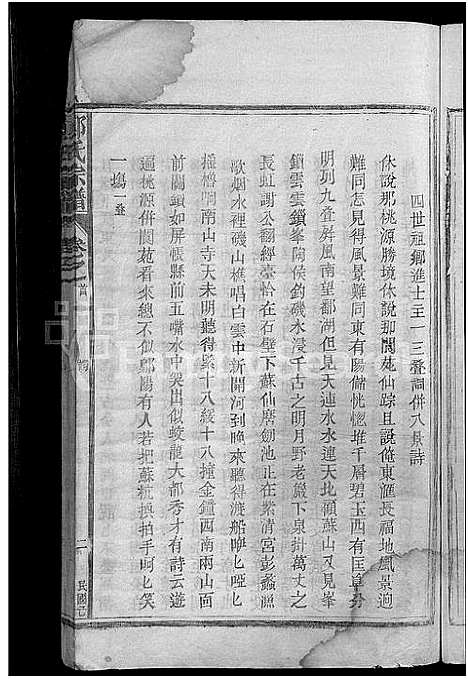 四世祖鄉進士王一三叠詞併八景詩
休說那桃源勝境休說那閬苑仙踪且說俺東滙長福地風景逈
難同怎見得風景難同東有陽儲恍惚堆千層碧玉西有匡阜分
明列九叠屏風南望鄱湖但見天連水水連天北嶺蘇山又見峯
鎖雲雲鎖峯陶侯釣磯水浸千古之明月野老巖下泉掛萬丈之
長虹謝公翻經臺恰在石壁下蘇仙磨劍池正在紫清宮彭蠡源
歌烟水裡磯山樵唱白雲中新開河到晚來聽得漁船咿匕啞匕
搖櫓 南山寺天未明聽得緊十八緩十八撞金鐘西南兩山面
前關鎖如屏帳縣前五嘯水中突出似蛟龍大都秀才有詩云遊
遍桃源併閬苑看來總不似鄱陽有人若把蘇杭換拍手呵匕笑
一塲 一叠
氏宗譜 卷之首
詩
二
民國己